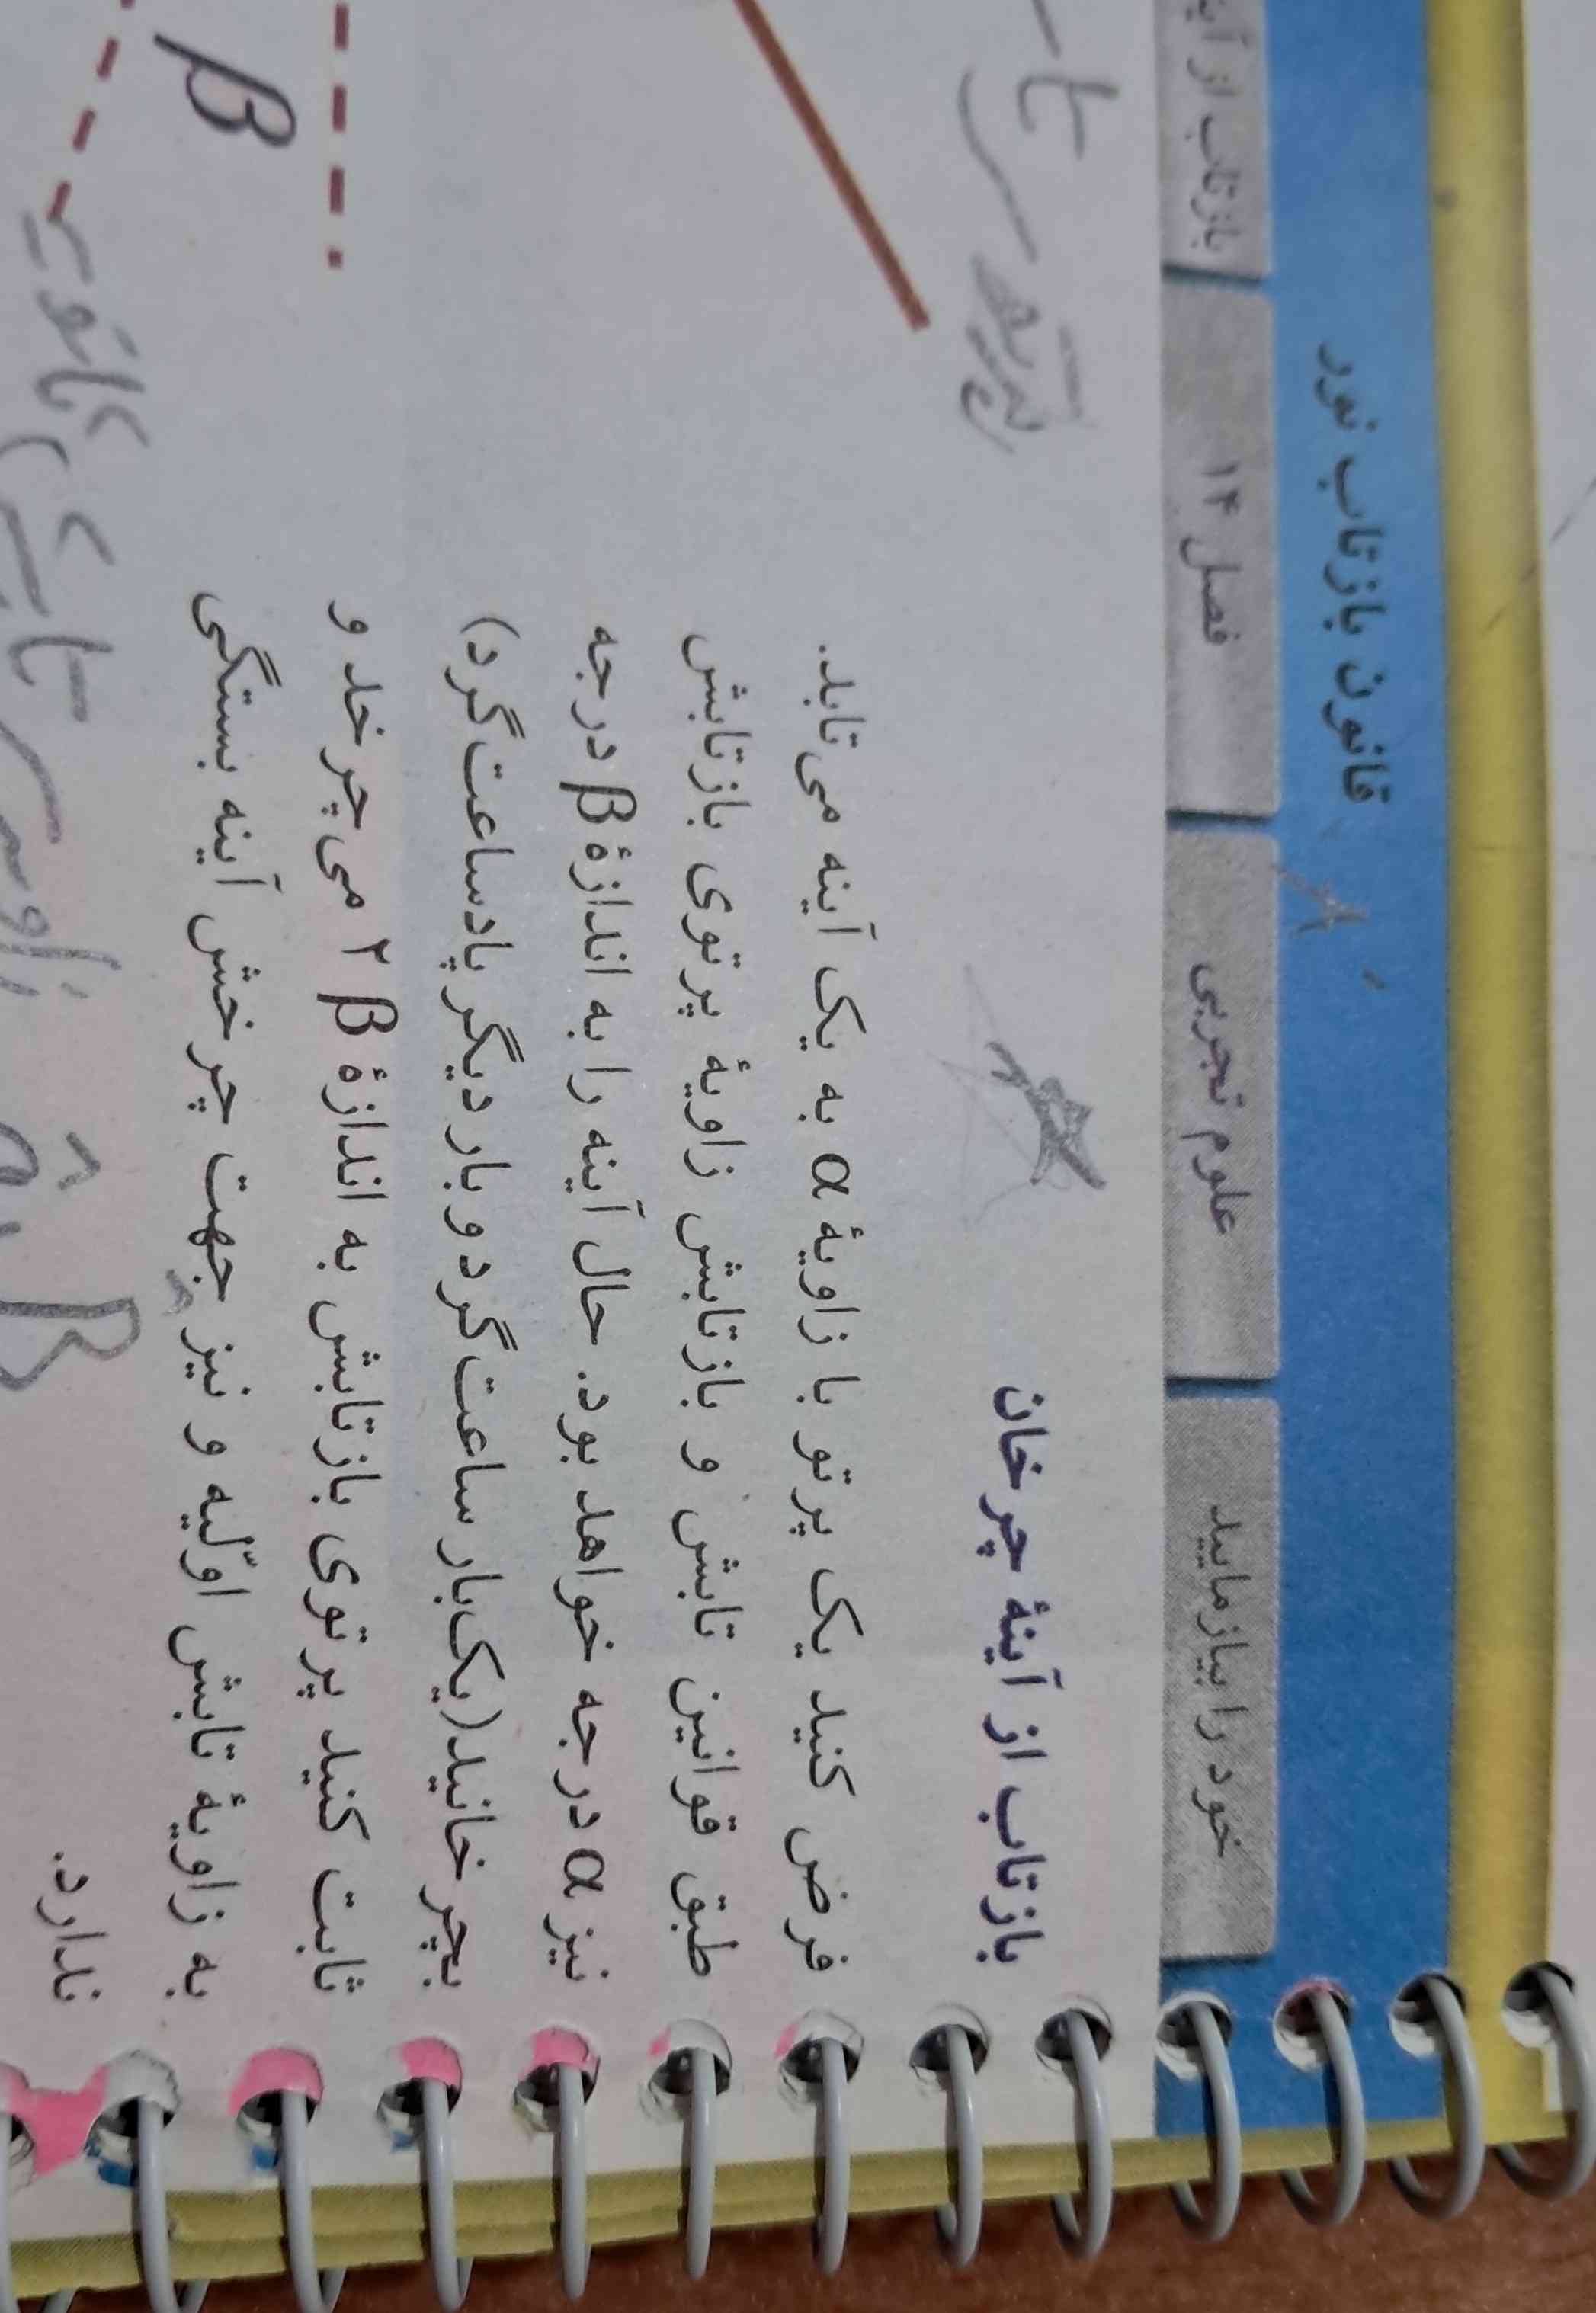 قانون بازتاب نور
خود را بیازمایید
علوم تجربی
فصل ۱۴
بازتاب از
بازتاب از آینهٔ چرخان
فرض کنید یک پرتو با زاویهٔ α به یک آینه می‌تابد.
طبق قوانین تابش و بازتابش زاویهٔ پرتوی بازتابش
نیز α درجه خواهد بود. حال آینه را به اندازهٔ β درجه
بچرخانید(یک‌بار ساعت‌گرد و بار دیگر پادساعت‌گرد)
ثابت کنید پرتوی بازتابش به اندازهٔ ۲β می‌چرخد و
به زاویهٔ تابش اوّلیه و نیز جهت چرخش آینه بستگی
ندارد.
β
β